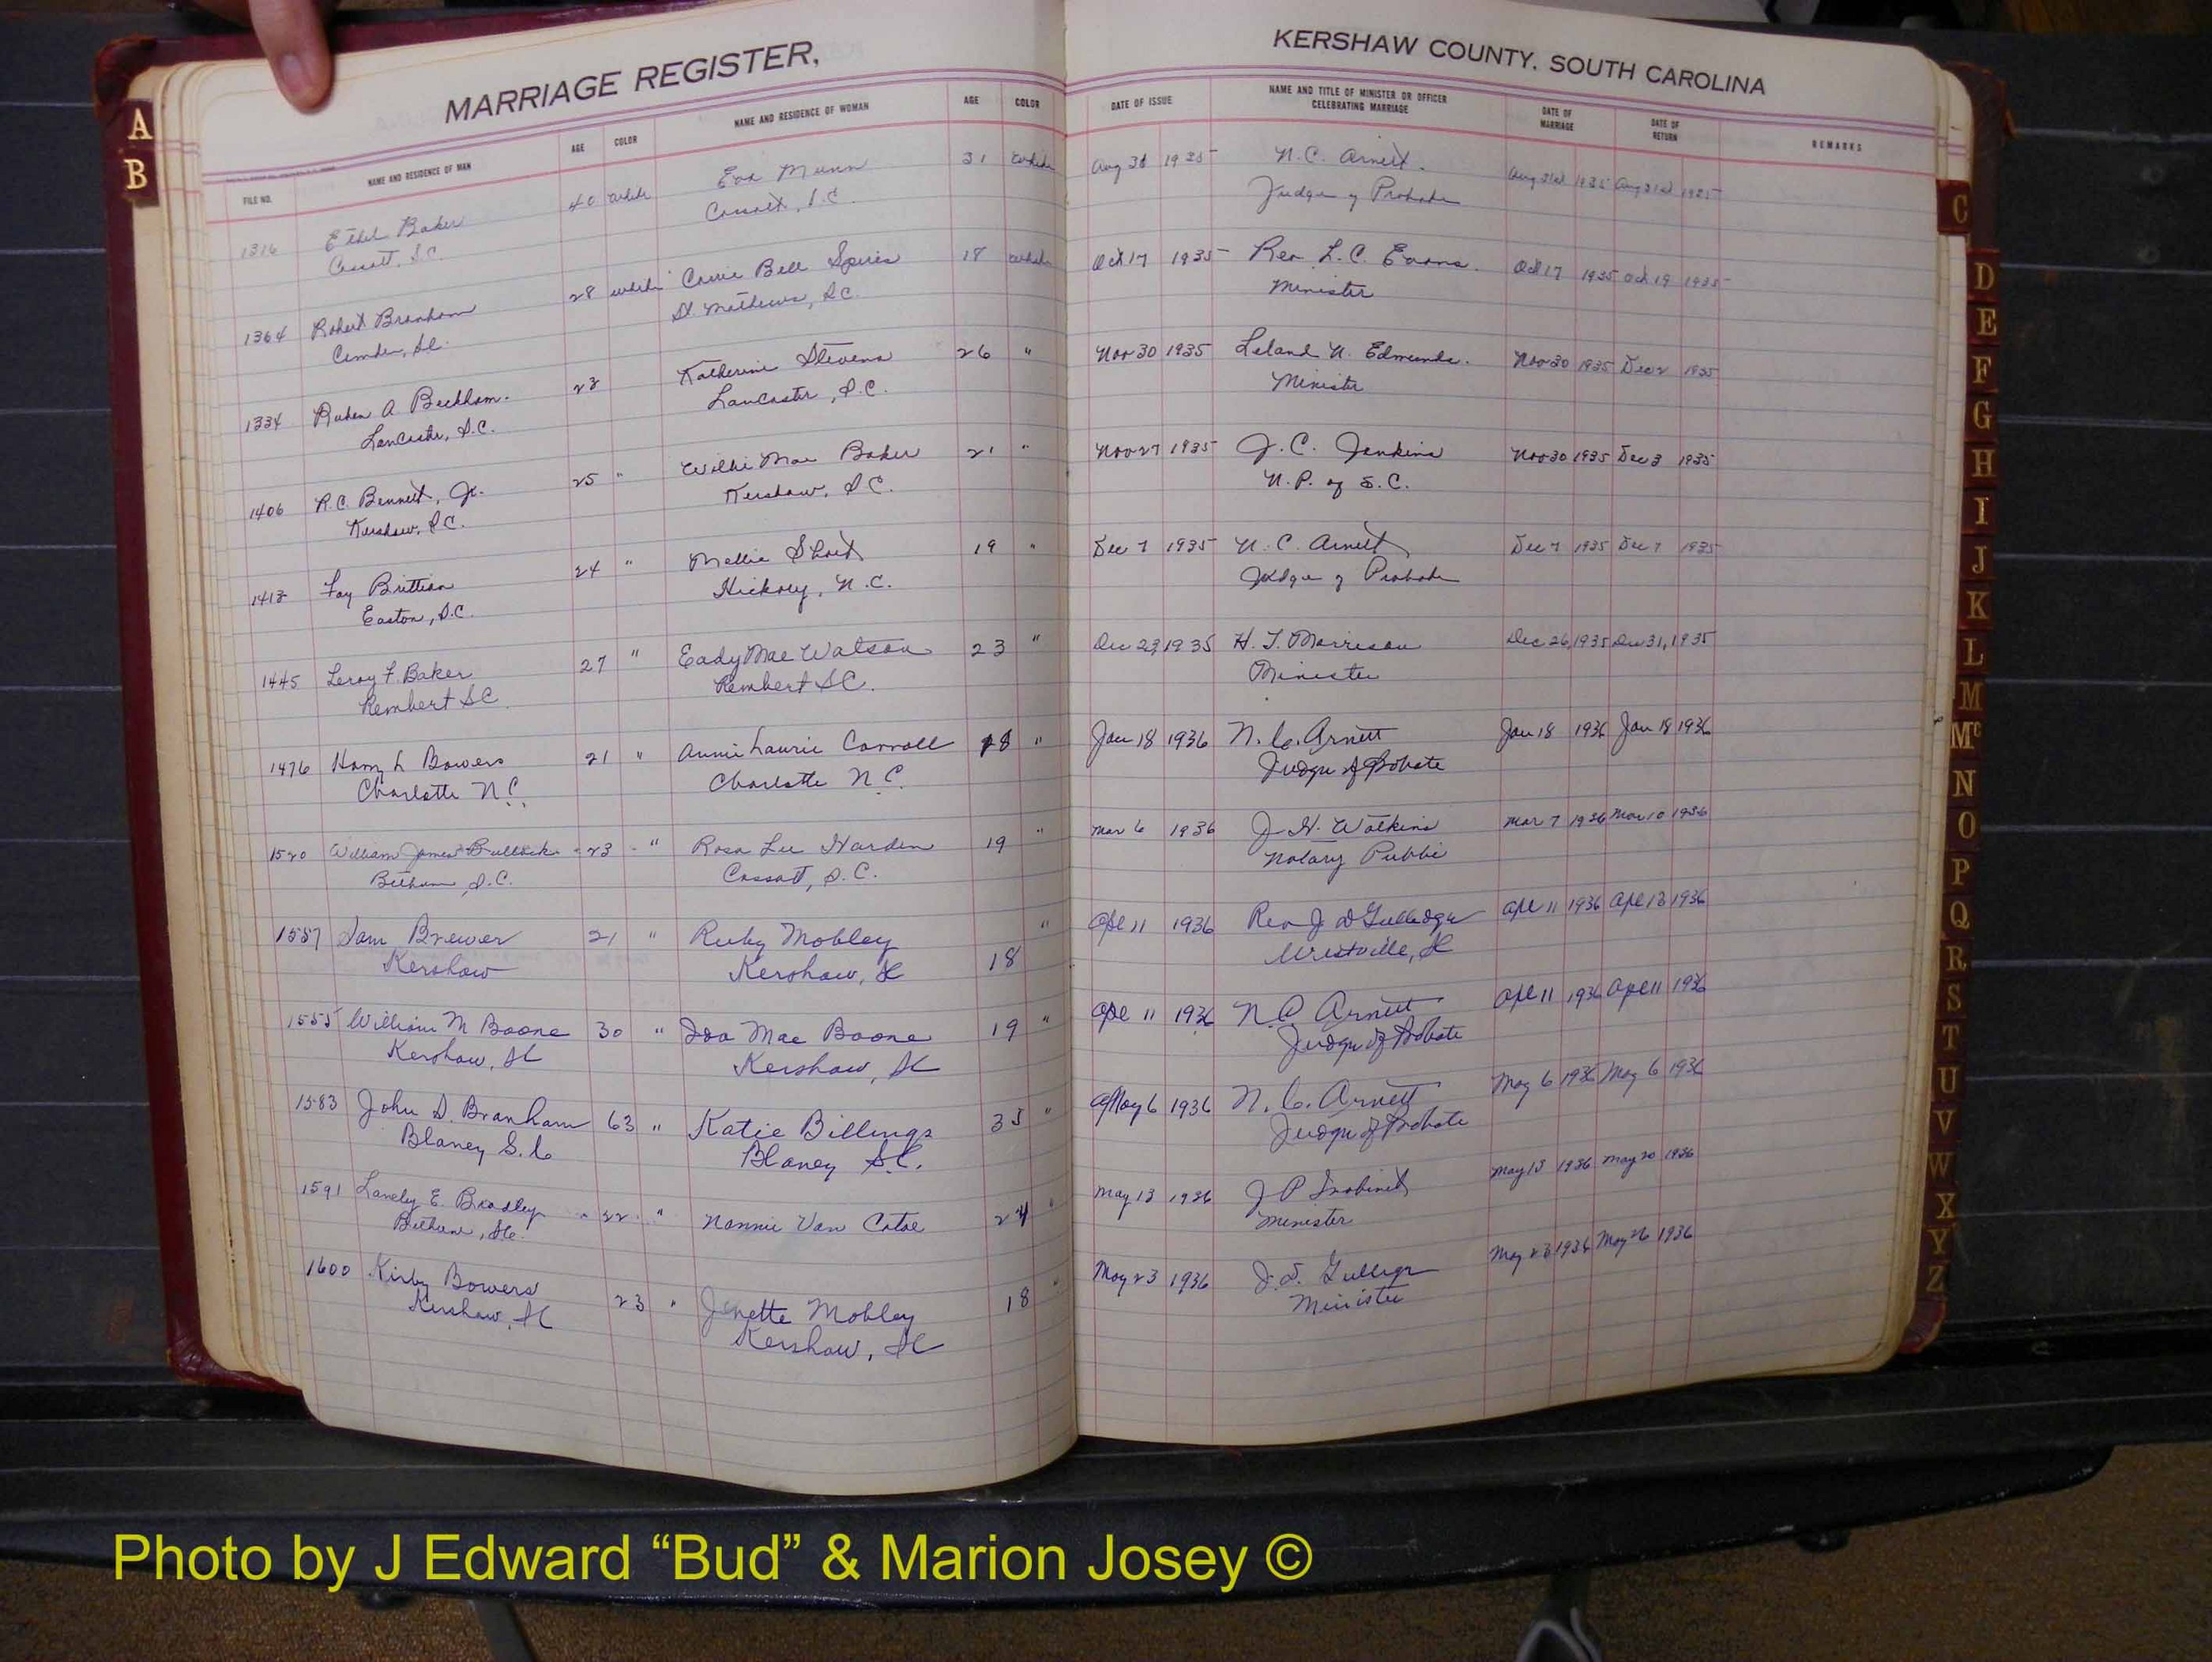 MARRIAGE REGISTER,
KERSHAW COUNTY, SOUTH CAROLINA
FILE NO. NAME AND RESIDENCE OF MAN AGE COLOR NAME AND RESIDENCE OF WOMAN AGE COLOR DATE OF ISSUE NAME AND TITLE OF MINISTER OR OFFICER CELEBRATING MARRIAGE DATE OF MARRIAGE DATE OF RETURN REMARKS
1316 Ethel Baker 40 white Eva Munn 31 white Aug 31 1935 N.C. Arnett. Aug 31st 1935 Aug 31st 1935
Cassatt, S.C. Cassatt, S.C. Judge of Probate
1364 Robert Branham 28 white Carrie Bell Spires 18 white Oct 17 1935 Rev L.C. Evans. Oct 17 1935 Oct 19 1935
Camden, S.C. St Mathews, S.C. Minister
1334 Ruben A Beckham. 23 Katherine Stevens 26 " Nov 30 1935 Leland N. Edmunds. Nov 30 1935 Dec 2 1935
Lancaster, S.C. Lancaster, S.C. Minister
1406 R.C. Bennett, Jr. 25 " Willie Mae Baker 21 " Nov 27 1935 J.C. Jenkins Nov 30 1935 Dec 3 1935
Kershaw, S.C. Kershaw, S.C. N.P. of S.C.
1413 Fay Brittian 24 " Mellie Short 19 " Dec 7 1935 N.C. Arnett Dec 7 1935 Dec 7 1935
Easton, S.C. Hickory, N.C. Judge of Probate
1445 Leroy F. Baker 27 " Eady Mae Watson 23 " Dec 23, 1935 H.T. Morrison Dec 26, 1935 Dec 31, 1935
Rembert SC Rembert SC. Minister
1476 Harry L Bowers 21 " Annie Laurie Carroll 18 " Jan 18 1936 N.C. Arnett Jan 18 1936 Jan 18 1936
Charlotte N.C. Charlotte N.C. Judge of Probate
1520 William James Bullock 23 " Rosa Lee Harden 19 " Mar 6 1936 J.H. Watkins Mar 7 1936 Mar 10 1936
Bethune, S.C. Cassatt, S.C. Notary Public
1557 Sam Brewer 21 " Ruby Mobley 18 " Apl 11 1936 Rev J D Gulledge Apl 11 1936 Apl 13 1936
Kershaw Kershaw, SC Westville, SC
1555 William M Boone 30 " Ida Mae Boone 19 " Apl 11 1936 N.C. Arnett Apl 11 1936 Apl 11 1936
Kershaw, SC Kershaw, SC Judge of Probate
1583 John D. Branham 63 " Katie Billings 35 " May 6 1936 N.C. Arnett May 6 1936 May 6 1936
Blaney S.C Blaney S.C. Judge of Probate
1591 E. Bradley 22 " Nannie Van Catoe 24 " May 13 1936 J P May 13 1936 May 20 1936
Bethune, SC. Minister
1600 Kirby Bowers 23 " Jenette Mobley 18 " May 23 1936 J.D. Gulledge May 23 1936 May 26 1936
Kershaw, SC Kershaw, SC Minister
A
B
C
D
E
F
G
H
I
J
K
L
M
Mc
N
O
P
Q
R
S
T
U
V
W
X
Y
Z
Photo by J Edward “Bud” & Marion Josey ©